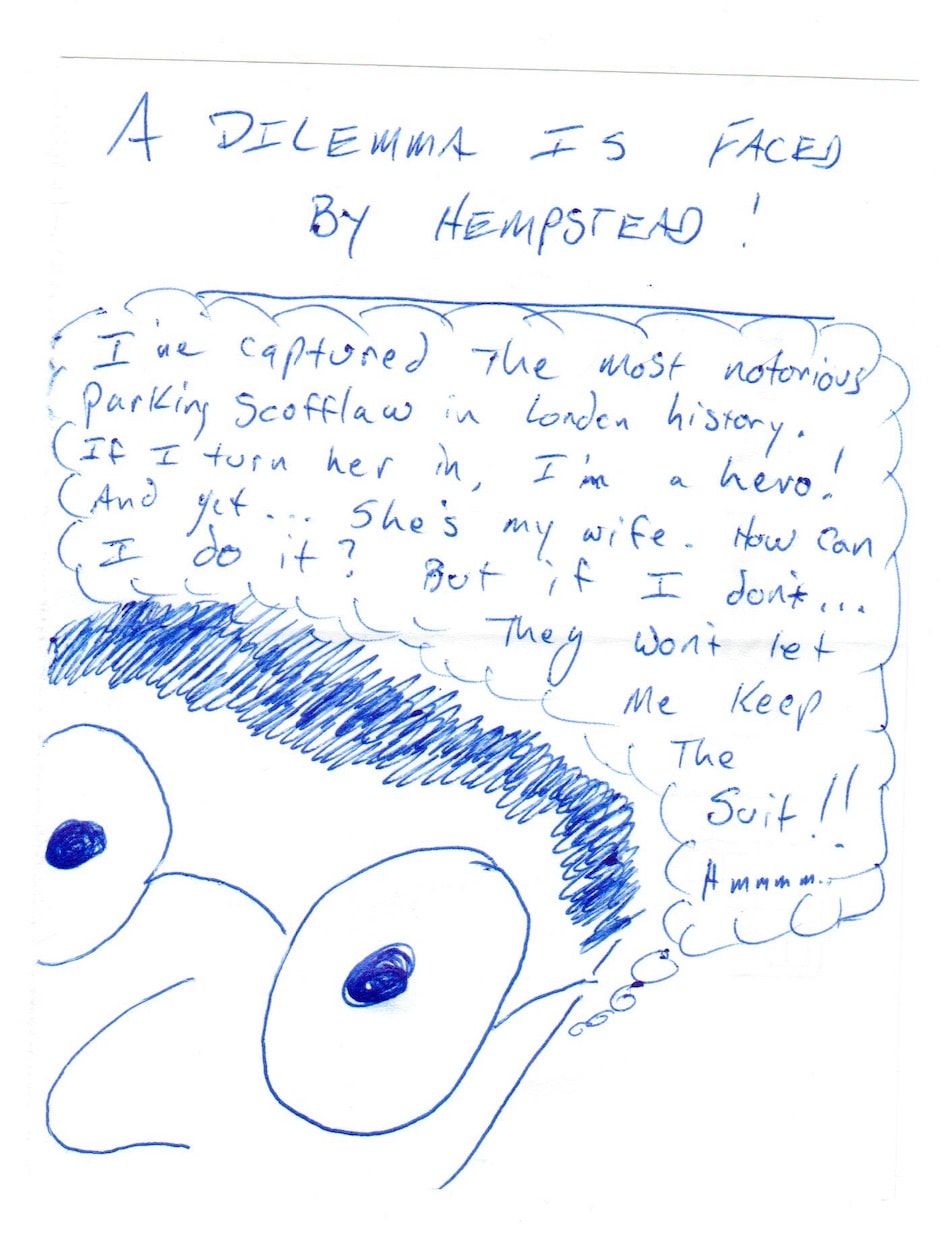 A DILEMMA IS FACED
BY HEMPSTEAD!
I've captured The most notorious
Parking Scofflaw in London history.
If I turn her in, I'm a hero!
And yet... She's my wife. How can
I do it? But if I don't...
They won't let
Me Keep
The
Suit!!
Hmmmm...